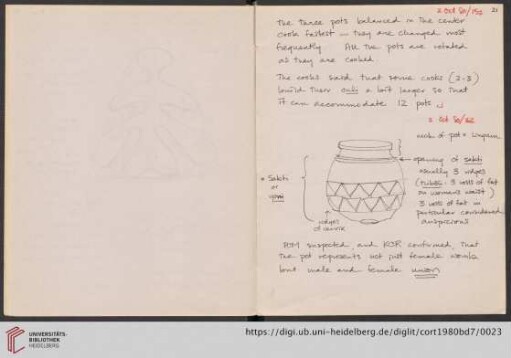 2 Oct 80/150 21
The three pots balanced in the center
cook fastest — they are changed most
frequently All the pots are rotated
as they are cooked.
The cooks said that some cooks (2-3)
build their only a bit larger so that
it can accommodate 12 pots
2 Oct 80/
neck of pot =
opening of sakti
usually 3 ridges
(3 rolls of fat
on woman's waist)
3 rolls of fat in
particular considered
auspicious
* Sakti
or
yoni
ridges
of
suspected, and confirmed, that
the pot represents not just female womb
but male and female union
UNIVERSITÄTS-
BIBLIOTHEK
HEIDELBERG
https://digi.ub.uni-heidelberg.de/diglit/cort1980bd7/0023